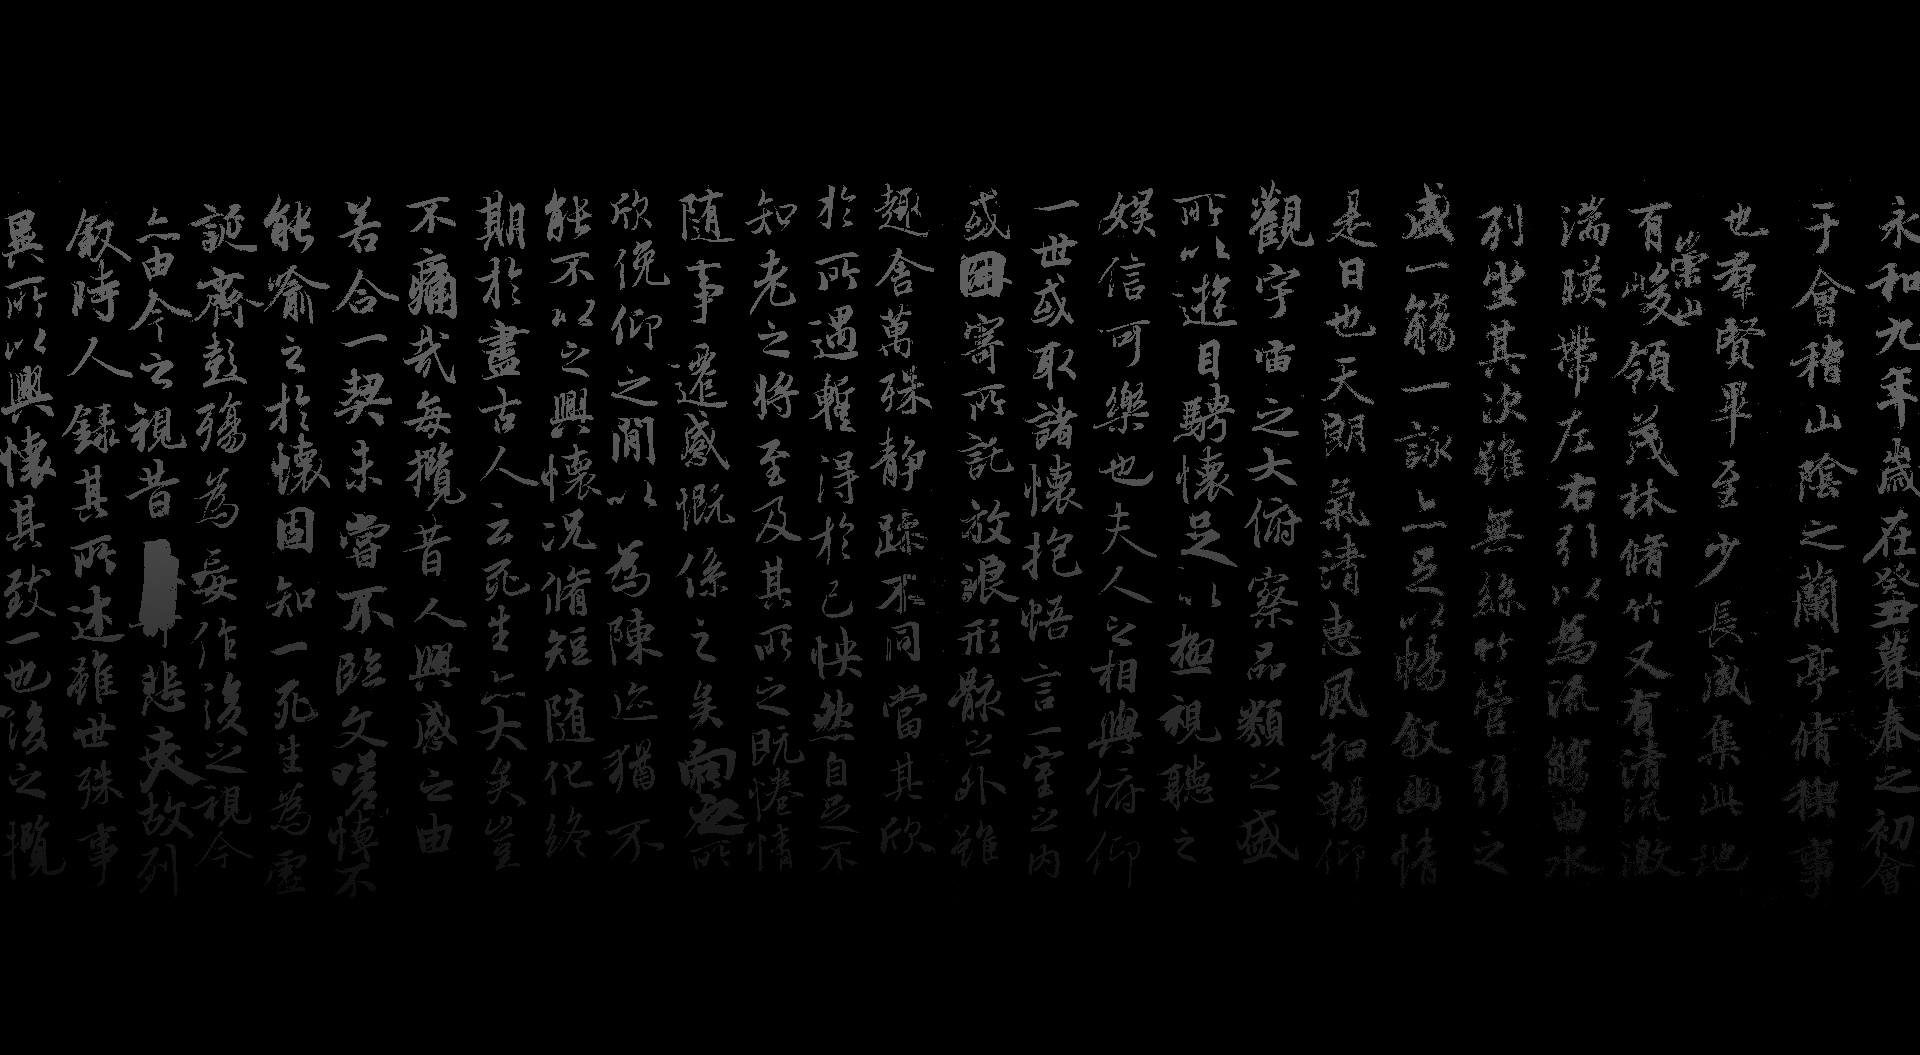 永和九年歲在癸丑暮春之初會
于會稽山陰之蘭亭脩稧事
也羣賢畢至少長咸集此地
有崇山峻領茂林脩竹又有清流激
湍暎帶左右引以為流觴曲水
列坐其次雖無絲竹管弦之
盛一觴一詠亦足以暢敘幽情
是日也天朗氣清惠風和暢仰
觀宇宙之大俯察品類之盛
所以遊目騁懷足以極視聽之
娛信可樂也夫人之相與俯仰
一世或取諸懷抱悟言一室之內
或因寄所託放浪形骸之外雖
趣舍萬殊静躁不同當其欣
於所遇暫得於己怏然自足不
知老之將至及其所之既惓情
隨事遷感慨係之矣向之所
欣俛仰之閒以為陳迹猶不
能不以之興懷況脩短隨化終
期於盡古人云死生亦大矣豈
不痛哉每攬昔人興感之由
若合一契未嘗不臨文嗟悼不
能喻之於懷固知一死生為虛
誕齊彭殤為妄作後之視今
亦由今之視昔悲夫故列
敘時人錄其所述雖世殊事
異所以興懷其致一也後之攬